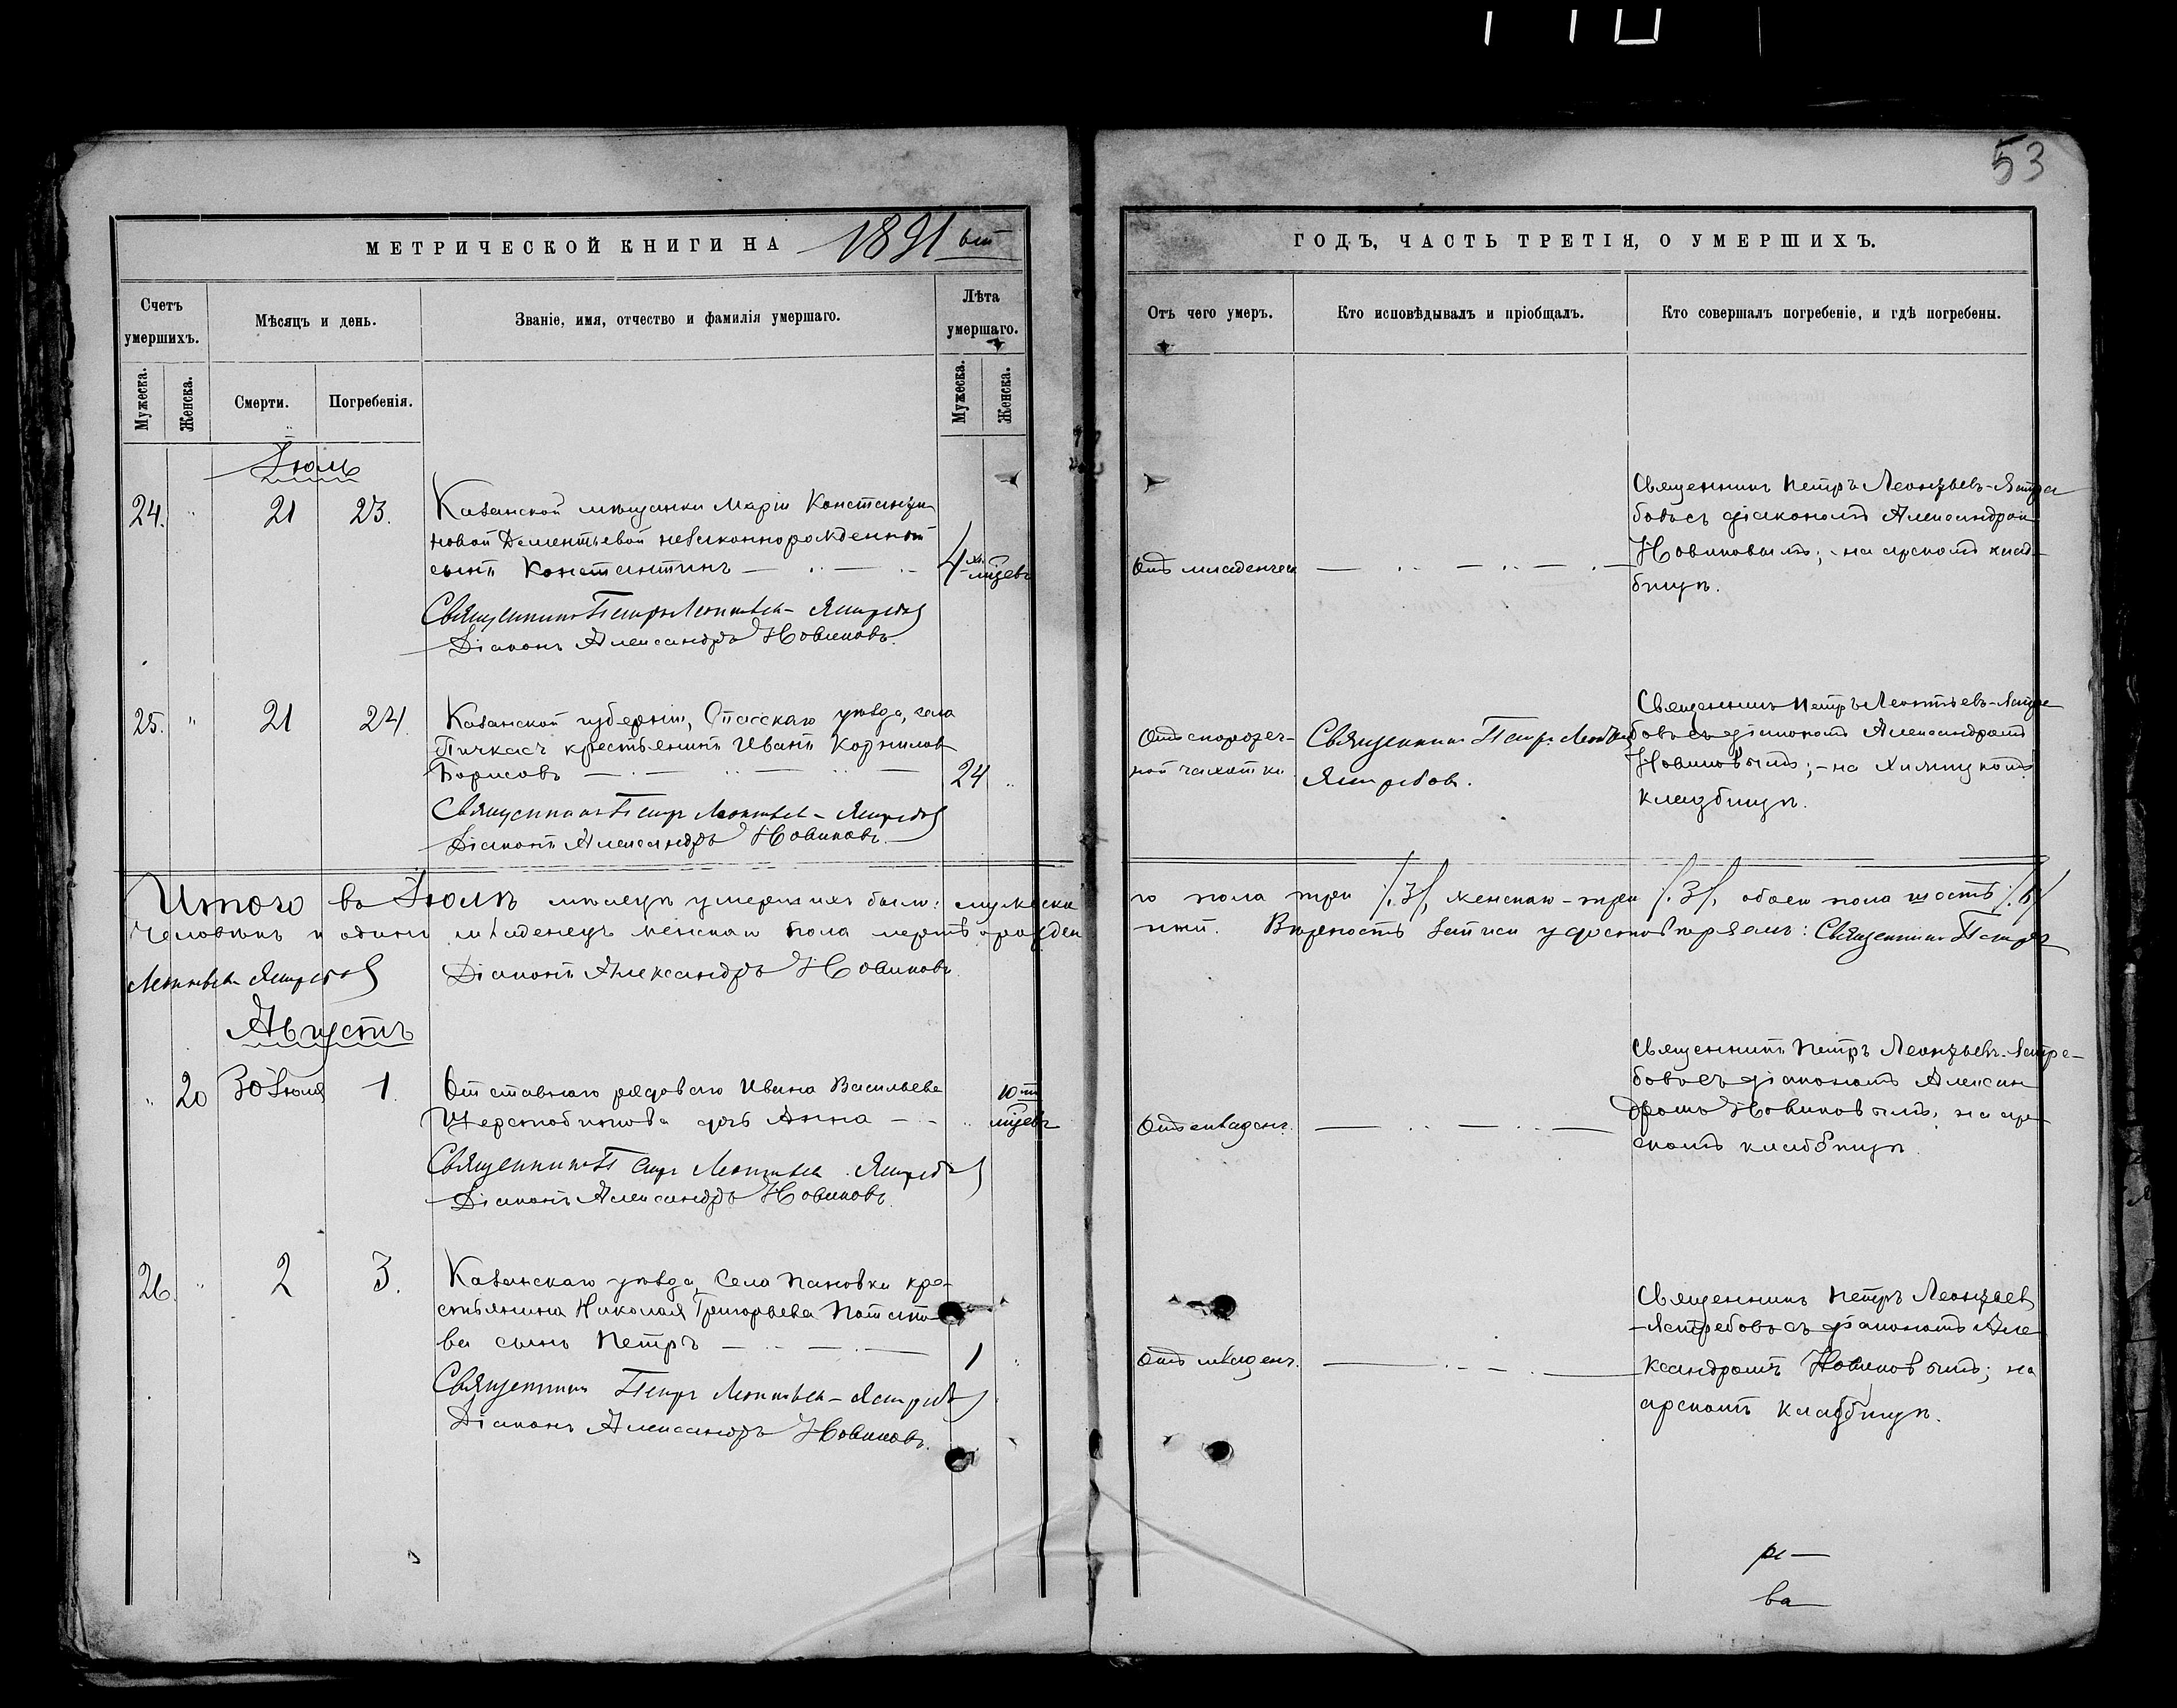 53
МЕТРИЧЕСКОЙ КНИГИ НА 1891 ый
ГОДЪ, ЧАСТЬ ТРЕТІЯ, О УМЕРШИХЪ.
Счетъ умершихъ.
Мѣсяцъ и день.
Званіе, имя, отчество и фамилія умершаго.
Лѣта умершаго.
Отъ чего умеръ.
Кто исповѣдывалъ и пріобщалъ.
Кто совершалъ погребеніе, и гдѣ погребены.
Мужеска.
Женска.
Смерти.
Погребенія.
Мужеска.
Женска.
Іюль
24. " 21 23.
Казанской мѣщанки Маріи Константи-
новой Дементьевой незаконнорожденный
сынъ Константинъ
4 х мѣсяцевъ
Отъ младенческ
Священникъ Петръ Леонтьевъ-Ястре
бовъ съ діакономъ Александром
Новиковымъ; - на арскомъ клад-
бищѣ.
Священникъ Петръ Леонтьевъ-Ястребовъ
Діаконъ Александръ Новиковъ.
25. " 21 24.
Казанской губерніи, Спасскаго уѣзда, села
Пичкасъ крестьянинъ Иванъ Корнилов
Борисовъ
24 "
Отъ скоротеч-
ной чахотки
Священникъ Петръ Леонтьевъ
Ястребовъ.
Священникъ Петръ Леонтьевъ-Ястре
бовъ съ діакономъ Александромъ
Новиковымъ; - на
кладбищѣ.
Священникъ Петръ Леонтьевъ-Ястребовъ
Діаконъ Александръ Новиковъ.
Итого въ Іюлѣ мѣсяцѣ умершихъ было: мужеска
го пола три /.3/, женскаго - три /.3/, обоего пола шесть /.6/
человѣкъ и одинъ младенецъ женскаго пола мертворожден
ный. Вѣрность записи удостовѣряемъ: Священникъ Петръ
Леонтьевъ-Ястребовъ
Діаконъ Александръ Новиковъ.
Августъ
" 20 30 Іюля 1.
Отставнаго рядоваго Ивана Васильева
Шерстобитова дочь Анна
" 10 ти мѣсяцевъ
Отъ младенч.
Священникъ Петръ Леонтьевъ-Ястре-
бовъ съ діакономъ Алексан
дромъ Новиковымъ; на ар-
скомъ кладбищѣ
Священникъ Петръ Леонтьевъ-Ястребовъ
Діаконъ Александръ Новиковъ.
26. " 2 3.
Казанскаго уѣзда, Села Пановки кре-
стьянина Николая Григорьева Потапо-
ва сынъ Петръ
1 "
Отъ младенч.
Священникъ Петръ Леонтьев
-Ястребовъ съ діакономъ Але
ксандромъ Новиковымъ; на
арскомъ кладбищѣ.
Священникъ Петръ Леонтьевъ-Ястребовъ
Діаконъ Александръ Новиковъ.
ва